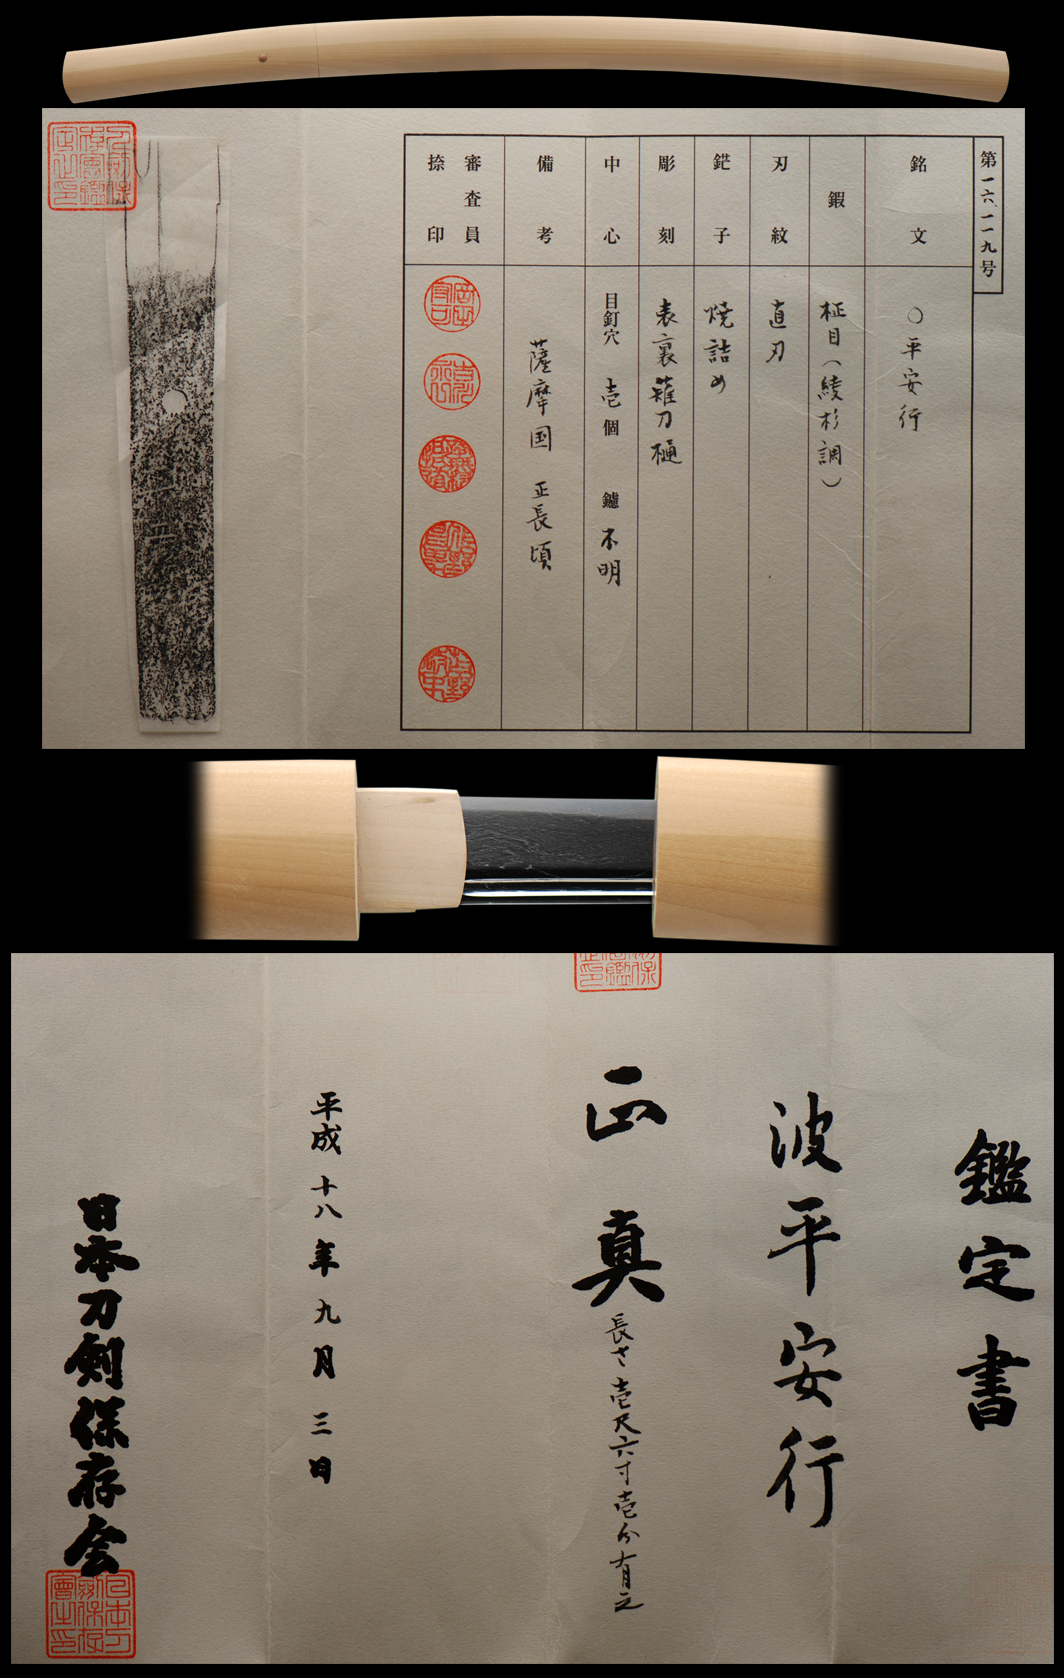 第一六、一一九号
銘文
○平安行
鍜
柾目（綾杉調）
刃紋
直刃
鋩子
焼詰め
彫刻
表裏薙刀樋
中心
目釘穴 壱個 鑢 不明
備考
薩摩国 正長頃
審査員
捺印
鑑定書
波平安行
正真
長さ壱尺六寸壱分有之
平成十八年九月三日
日本刀剣保存会